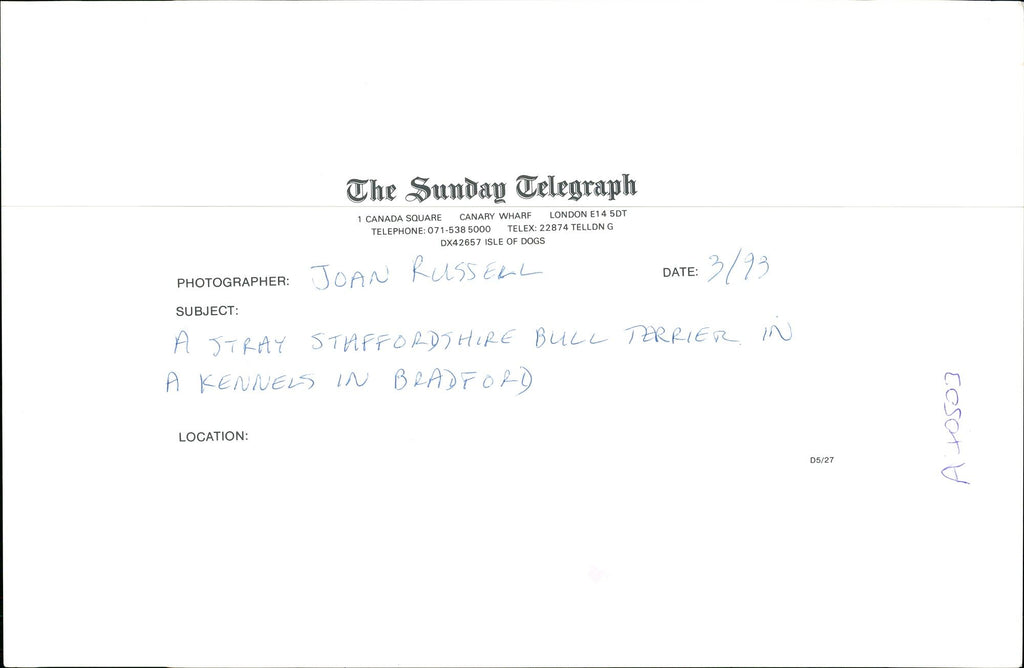 The Sunday Telegraph
1 CANADA SQUARE CANARY WHARF LONDON E14 5DT
TELEPHONE: 071-538 5000 TELEX: 22874 TELLDN G
DX42657 ISLE OF DOGS
PHOTOGRAPHER: JOAN RUSSELL DATE: 3/93
SUBJECT:
A STRAY STAFFORDSHIRE BULL TERRIER IN
A KENNELS IN BRADFORD
LOCATION:
D5/27
A40503